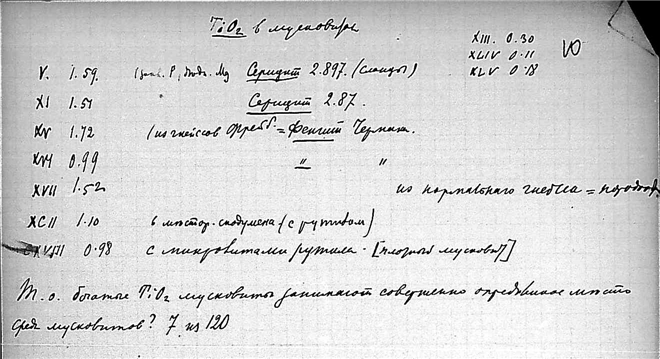 TiO₂ в мусковитах
XIII. 0.30
XLIV 0.11
XLV 0.18
V. 1.59. Серицит 2.897. (сланцы)
XI 1.51 Серицит 2.87.
XV 1.72 (из гнейсов = Фенгит Чермака.
XVI 0.99 " "
XVII 1.52 из нормального гнейса =
XCII 1.10 в сподумена (с рутилом)
0.98 с микролитами рутила. мусковит]
Т. о. богатые TiO₂ мусковиты занимают совершенно определенное место
среди мусковитов? 7 из 120